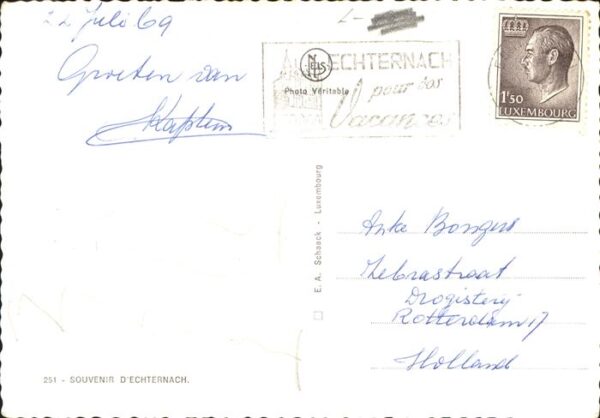 22 juli 69
Groeten van
L-
ECHTERNACH
pour vos
Vacances
NELS
Photo Véritable
1F50
LUXEMBOURG
E. A. Schaack - Luxembourg
Anke Bongers
Zebrastraat
Drogisterij
Rotterdam 17
Holland
251 - SOUVENIR D'ECHTERNACH.